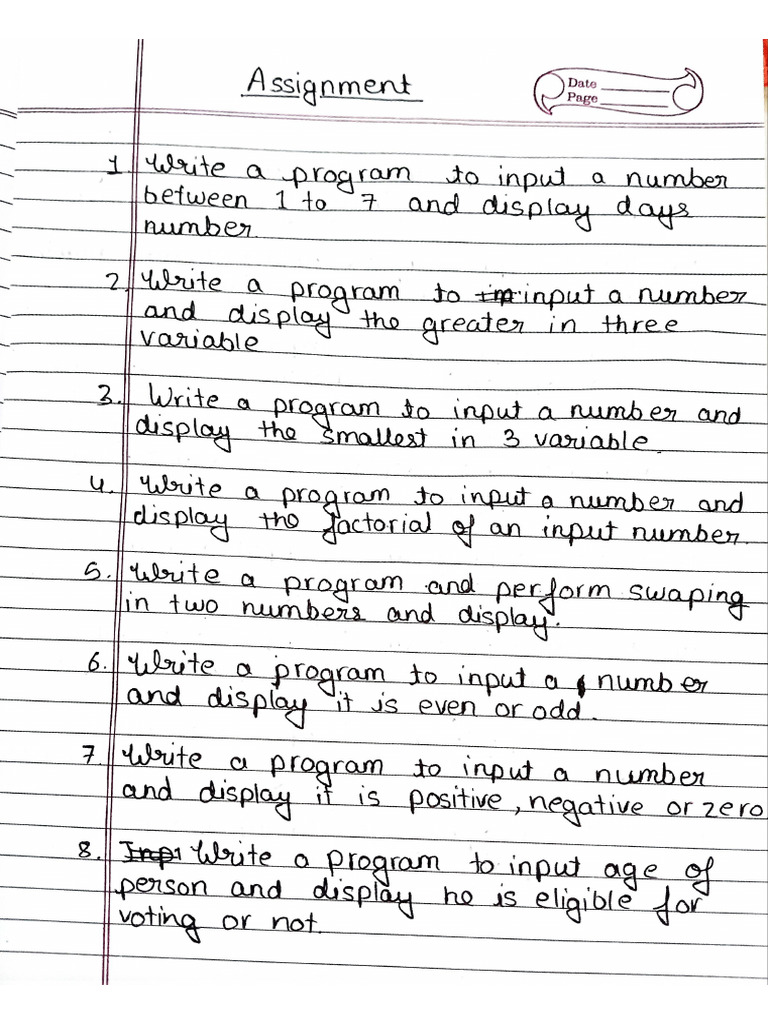 Assignment
Date
Page
1. Write a program to input a number
between 1 to 7 and display days
number.
2. Write a program to input a number
and display the greater in three
variable
3. Write a program to input a number and
display the smallest in 3 variable.
4. Write a program to input a number and
display the factorial of an input number.
5. Write a program and perform swaping
in two numbers and display.
6. Write a program to input a number
and display it is even or odd.
7. Write a program to input a number
and display it is positive, negative or zero
8. Write a program to input age of
person and display he is eligible for
voting or not.